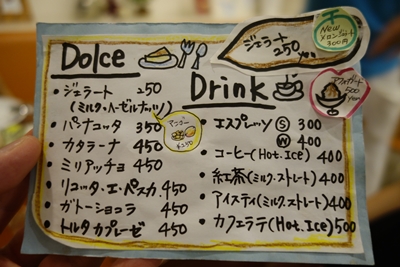 Dolce
・ジェラート 250
(ミルク・ヘーゼルナッツ)
・パンナコッタ 350
・カタラーナ 450
・ミリアッチョ 450
・リコッタ・エ・ペスカ 450
・ガトーショコラ 450
・トルタ カプレーゼ 450
マンゴー
ジェラート
250 yen
New
メロンジェラート
300円
アフォガート
500
yen
Drink
・エスプレッソ Ⓢ 300
Ⓦ 400
・コーヒー(Hot. Ice) 400
・紅茶(ミルク.ストレート) 400
・アイスティ(ミルク.ストレート) 400
・カフェラテ(Hot. Ice) 500